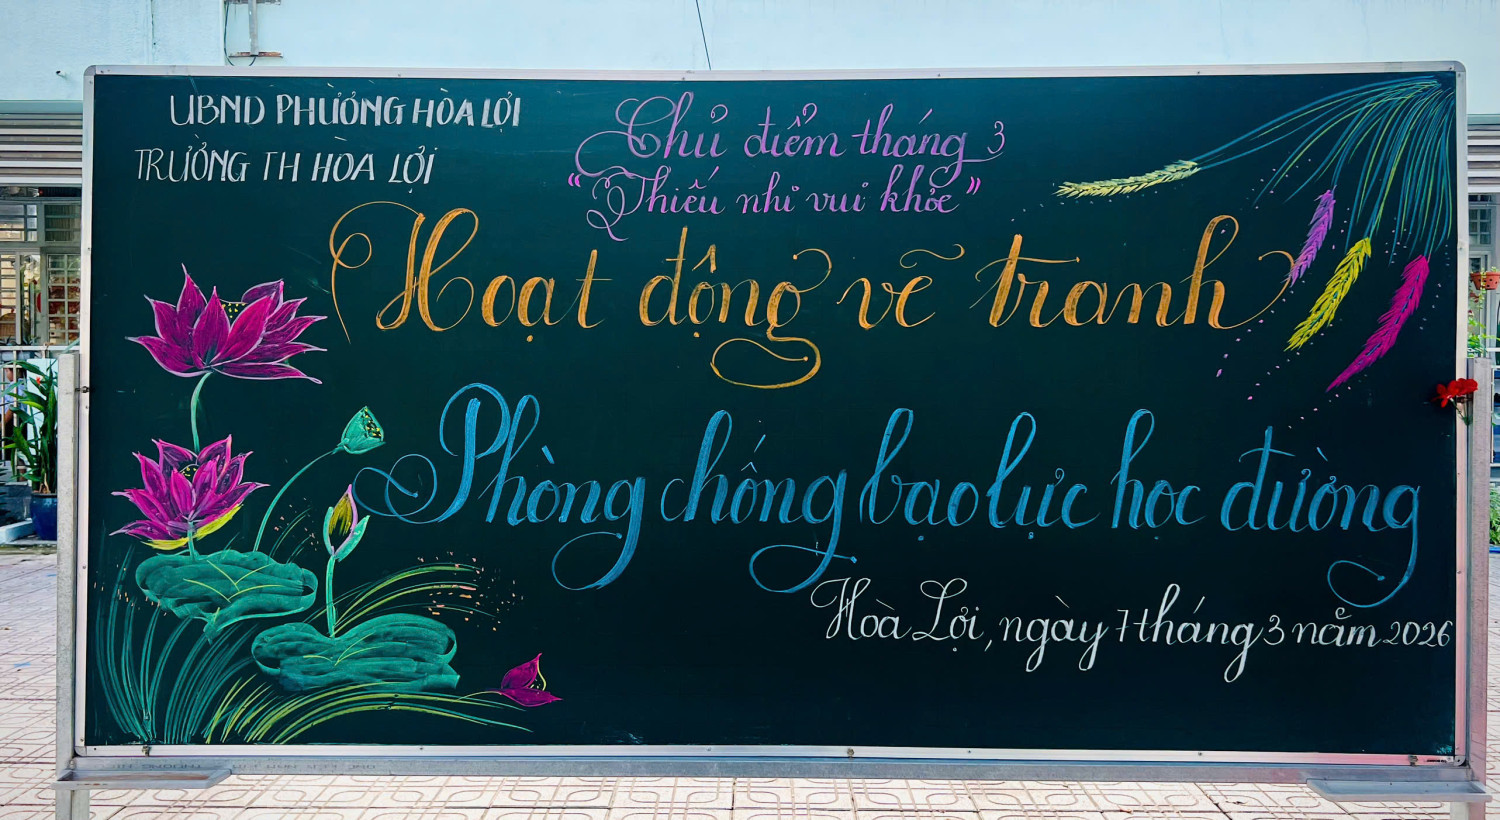 UBND PHƯỜNG HÒA LỢI
TRƯỜNG TH HÒA LỢI
Chủ điểm tháng 3
“Thiếu nhi vui khỏe”
Hoạt động vẽ tranh
Phòng chống bạo lực học đường
Hòa Lợi, ngày 7 tháng 3 năm 2026